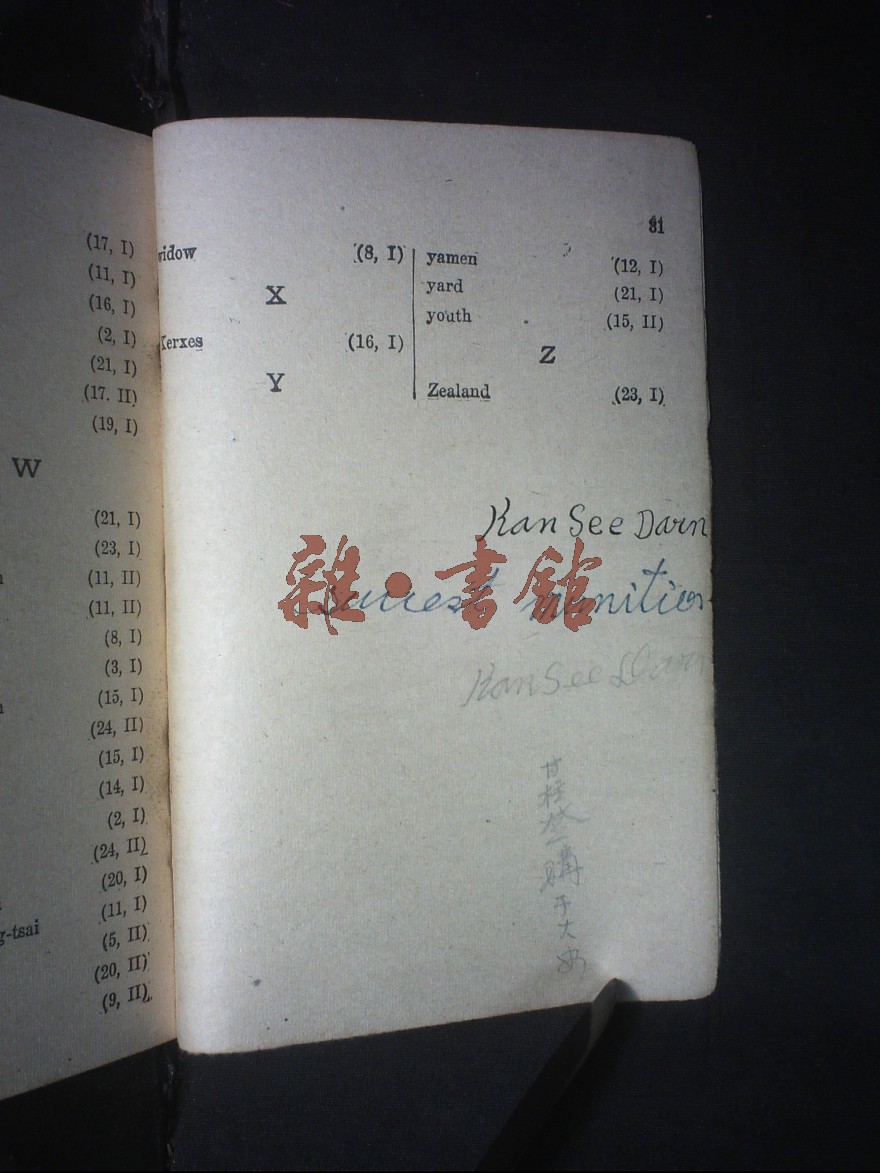 (17, I)
(11, I)
(16, I)
(2, I)
(21, I)
(17. II)
(19, I)
W
(21, I)
(23, I)
(11, II)
(11, II)
(8, I)
(3, I)
(15, I)
(24, II)
(15, I)
(14, I)
(2, I)
(24, II)
(20, I)
(11, I)
g-tsai (5, II)
(20, II)
(9, II)
31
widow (8, I)
X
Xerxes (16, I)
Y
yamen (12, I)
yard (21, I)
youth (15, II)
Z
Zealand (23, I)
Kan See Darn
雜·書館
Kan See Darn
甘
購于大